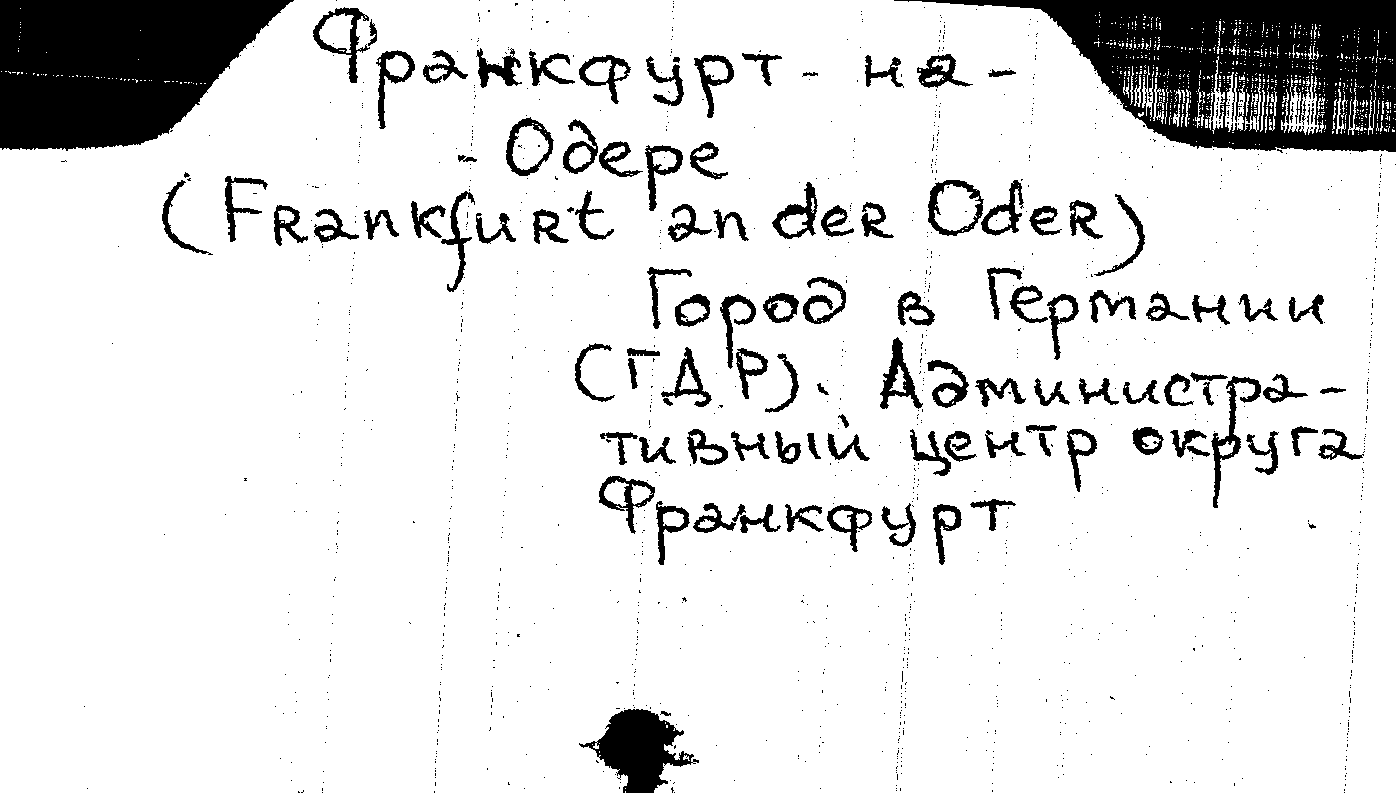 Франкфурт- на-
- Одере
(Frankfurt an der Oder)
Город в Германии
(ГДР). Администра-
тивный центр округа
Франкфурт